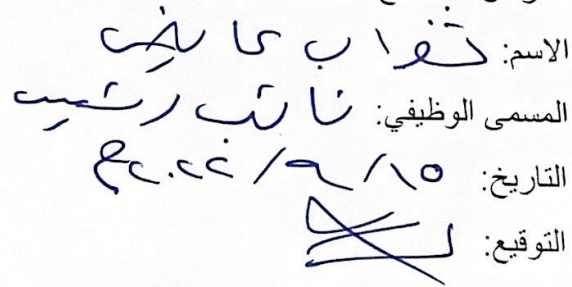 الاسم: ثواب عايض
المسمى الوظيفي: نائب رئيس
التاريخ: ١٥/٩/٢٠٢٢م
التوقيع: